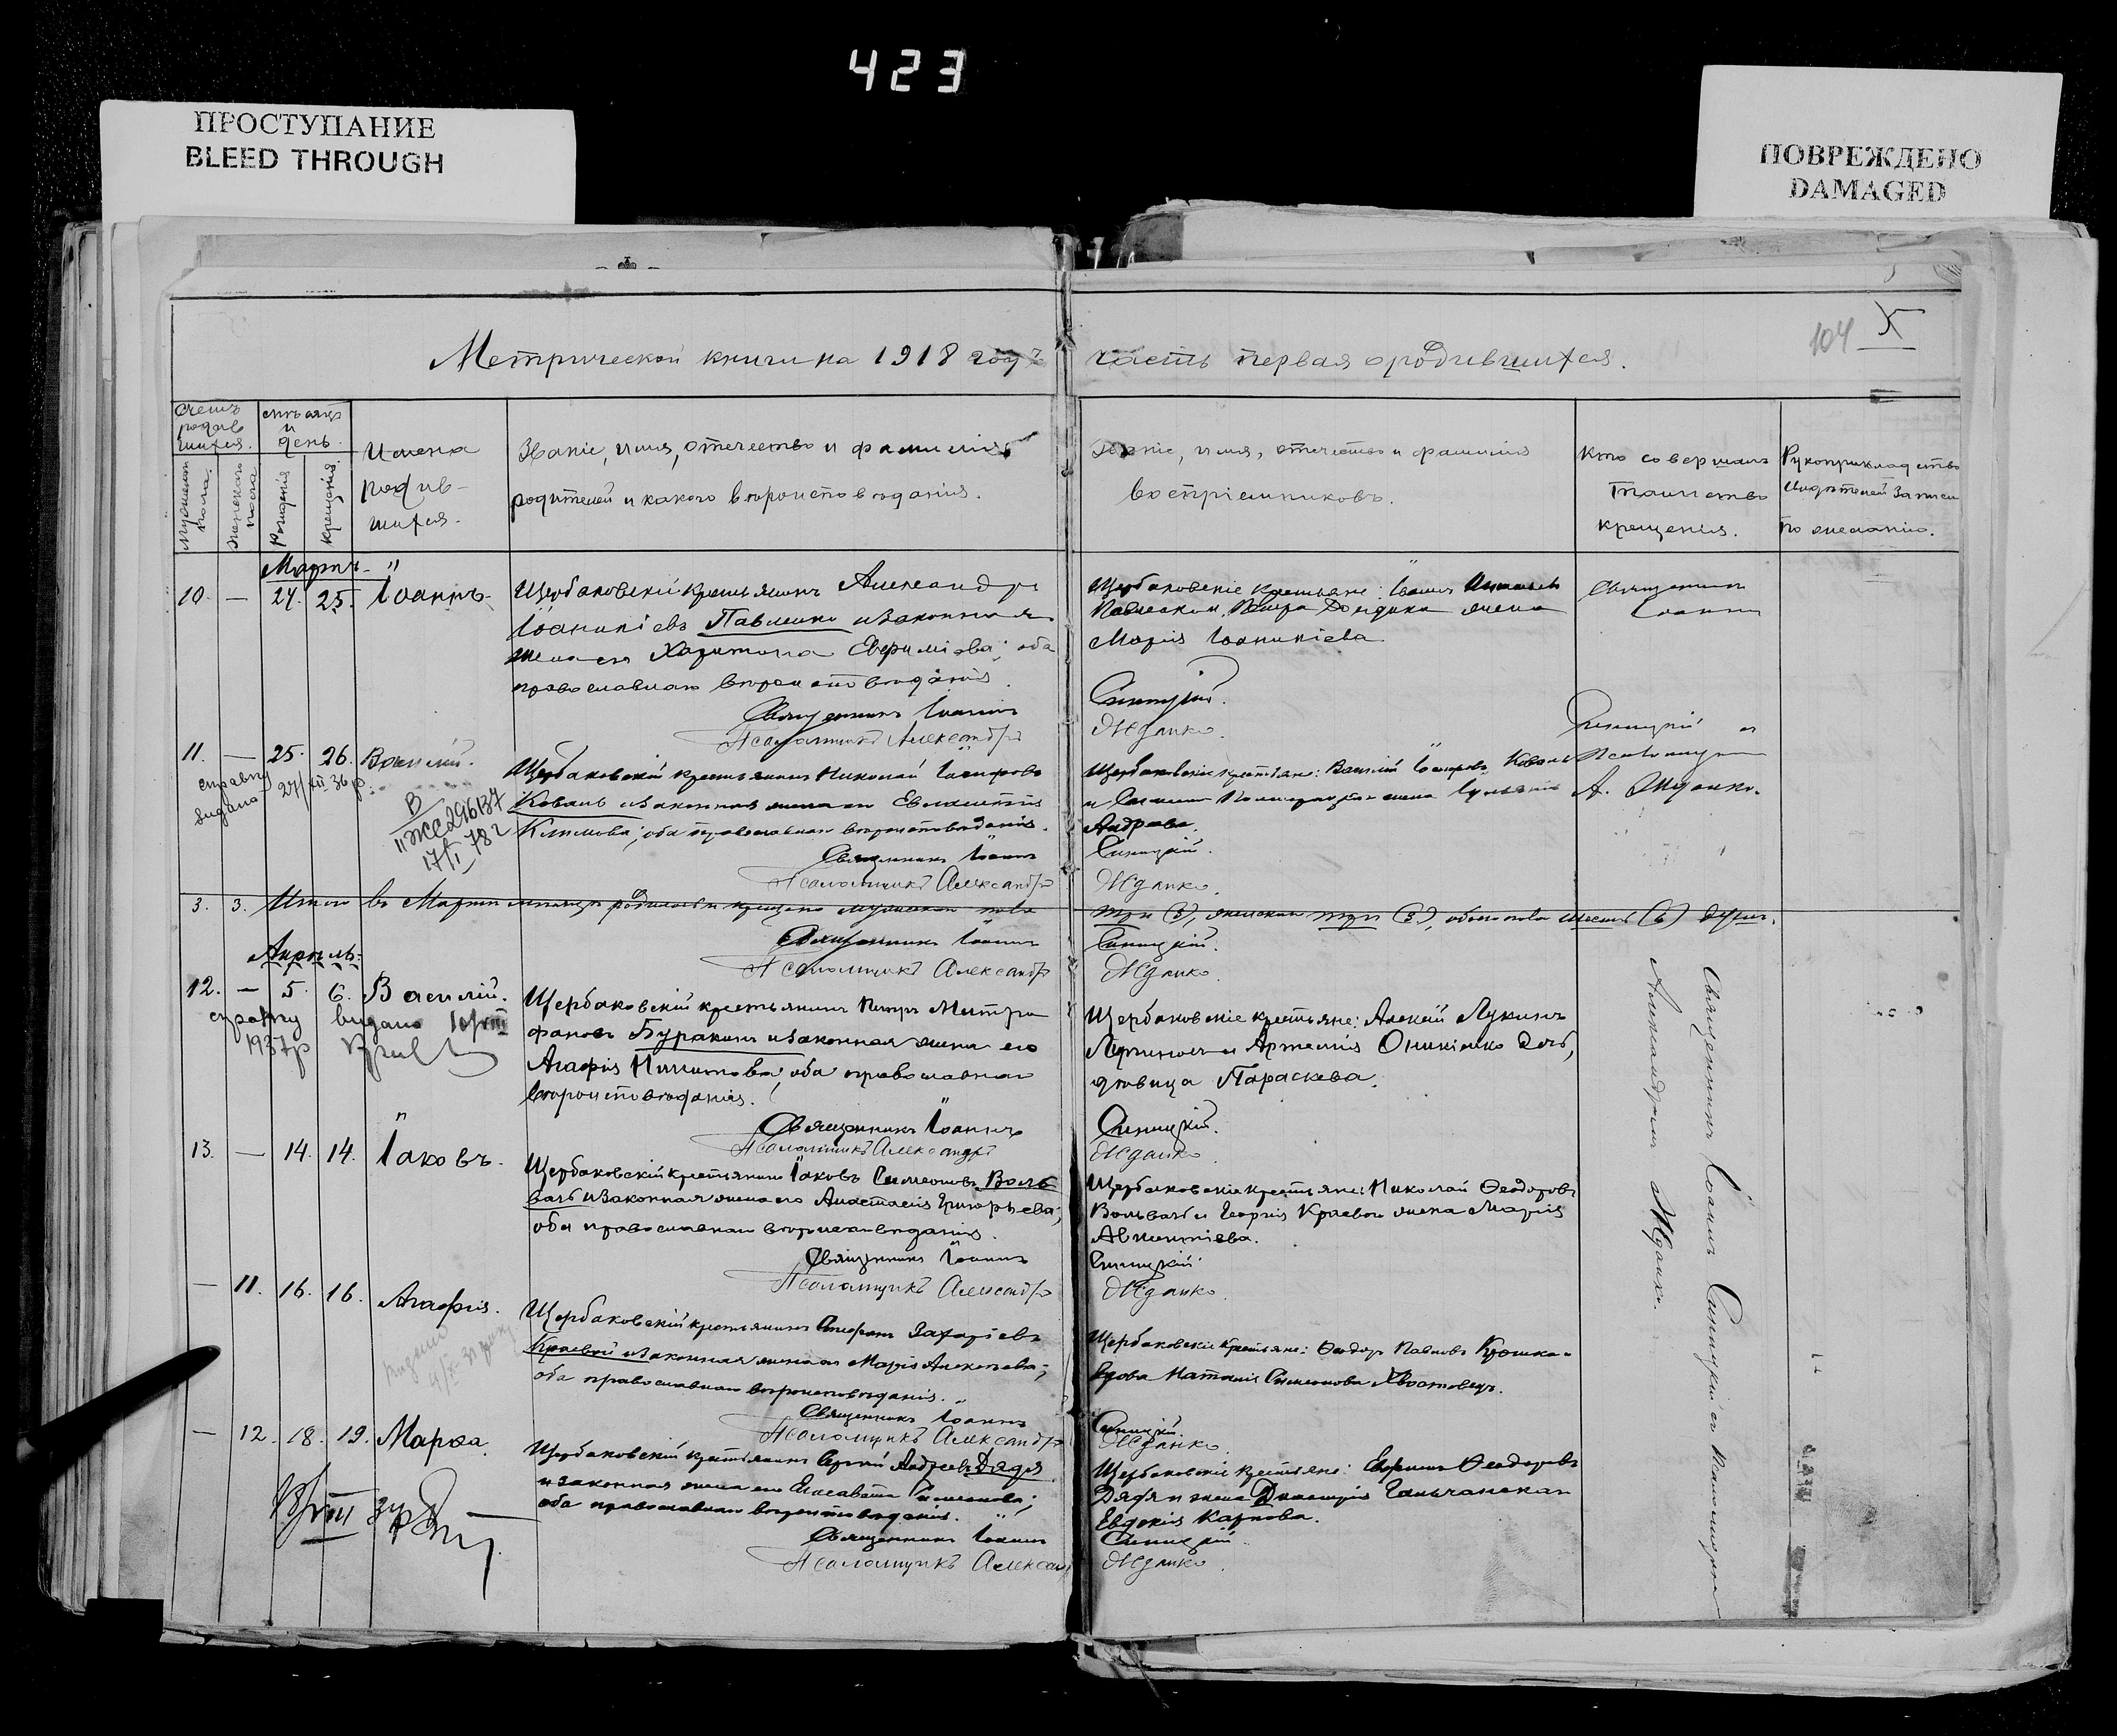 423
ПРОСТУПАНИЕ
BLEED THROUGH
ПОВРЕЖДЕНО
DAMAGED
104 X
Метрической книги на 1918 годъ часть первая о родившихся.
Счетъ родившихся.
Мужескаго пола.
Женскаго пола.
мѣсяцъ и день.
Рожденія
Крещенія.
Имена родившихся.
Званіе, имя, отечество и фамилія
родителей и какого вѣроисповѣданія.
Званіе, имя, отечество и фамилія
воспріемниковъ.
Кто совершалъ
таинство
крещенія.
Рукоприкладство
свидѣтелей записи
по желанію.
Мартъ.
10. — 24. 25. Іоаннъ.
Щербаковскій крестьянинъ Александръ
Іоаникіевъ Павленко и законная
жена его Харитина Евфиміева; оба
православнаго вѣроисповѣданія.
Священникъ Іоаннъ
Псаломщикъ Александръ
Щербаковскіе крестьяне: Іоаннъ
Павленко и Петра Дондика жена
Марія Іоаникіева.
Синицкій.
Жданко.
Священникъ
Іоаннъ
Синицкій и
Псаломщикъ
А. Жданко.
11. — 25. 26. Василій.
справку видано 27/XII 36 р.
В
II ЖС 246137
17/I 78 г
Щербаковскій крестьянинъ Николай Іосифовъ
Коваль и законная жена его
Климова; оба православнаго вѣроисповѣданія.
Священникъ Іоаннъ
Псаломщикъ Александръ
Щербаковскіе крестьяне: Василій Іосифовъ Коваль
и жена
Андреева.
Синицкій.
Жданко.
3. 3. Итого въ Мартѣ мѣсяцѣ родилось и крещено мужеска пола
три (3), женска три (3), обоего пола шесть (6) душъ.
Священникъ Іоаннъ
Псаломщикъ Александръ
Синицкій.
Жданко.
Апрѣль.
12. — 5. 6. Василій.
справку видано 10/VIII
1937р
Щербаковскій крестьянинъ Петръ Митро
фановъ Буракъ и законная жена его
Агафія Никитова, оба православнаго
вѣроисповѣданія.
Священникъ Іоаннъ
Псаломщикъ Александръ
Щербаковскіе крестьяне: Алексій Лукинъ
и Артемія Оникіенко дочь,
дѣвица Параскева.
Синицкій.
Жданко.
13. — 14. 14. Іаковъ.
Щербаковскій крестьянинъ Іаковъ Симеоновъ Воль
вачъ и законная жена его Анастасія Григорьева;
оба православнаго вѣроисповѣданія.
Священникъ Іоаннъ
Псаломщикъ Александръ
Щербаковскіе крестьяне: Николай Ѳеодоровъ
Вольвачъ и Георгія Краевого жена Марія
Авксентіева.
Синицкій
Жданко.
— 11. 16. 16. Агафія.
видано
Щербаковскій крестьянинъ Стефанъ Захаріевъ
Краевой и законная жена его Марія Алексѣева;
оба православнаго вѣроисповѣданія.
Священникъ Іоаннъ
Псаломщикъ Александръ
Щербаковскіе крестьяне: Ѳеодоръ Павловъ
вдова Наталія Симеонова Хвостовецъ.
Синицкій.
Жданко.
— 12. 18. 19. Марѳа.
Щербаковскій крестьянинъ Сергій Андреевъ Дядя
и законная жена его Елисавета Симеонова;
оба православнаго вѣроисповѣданія.
Священникъ Іоаннъ
Псаломщикъ Александръ
Щербаковскіе крестьяне: Евфимъ Ѳеодоровъ
Дядя и жена Димитрія Гальчанскаго
Евдокія Карпова.
Синицкій
Жданко.
Священникъ Іоаннъ Синицкій съ Псаломщикомъ
Александромъ Жданко.